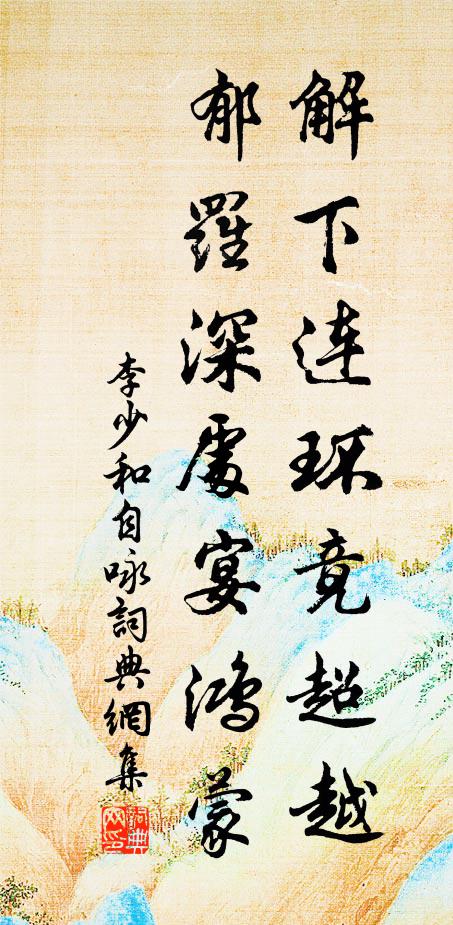 解下连环竟超越
郁羅深處宴鸿蒙
李少和自咏詞典網集
詞典網印